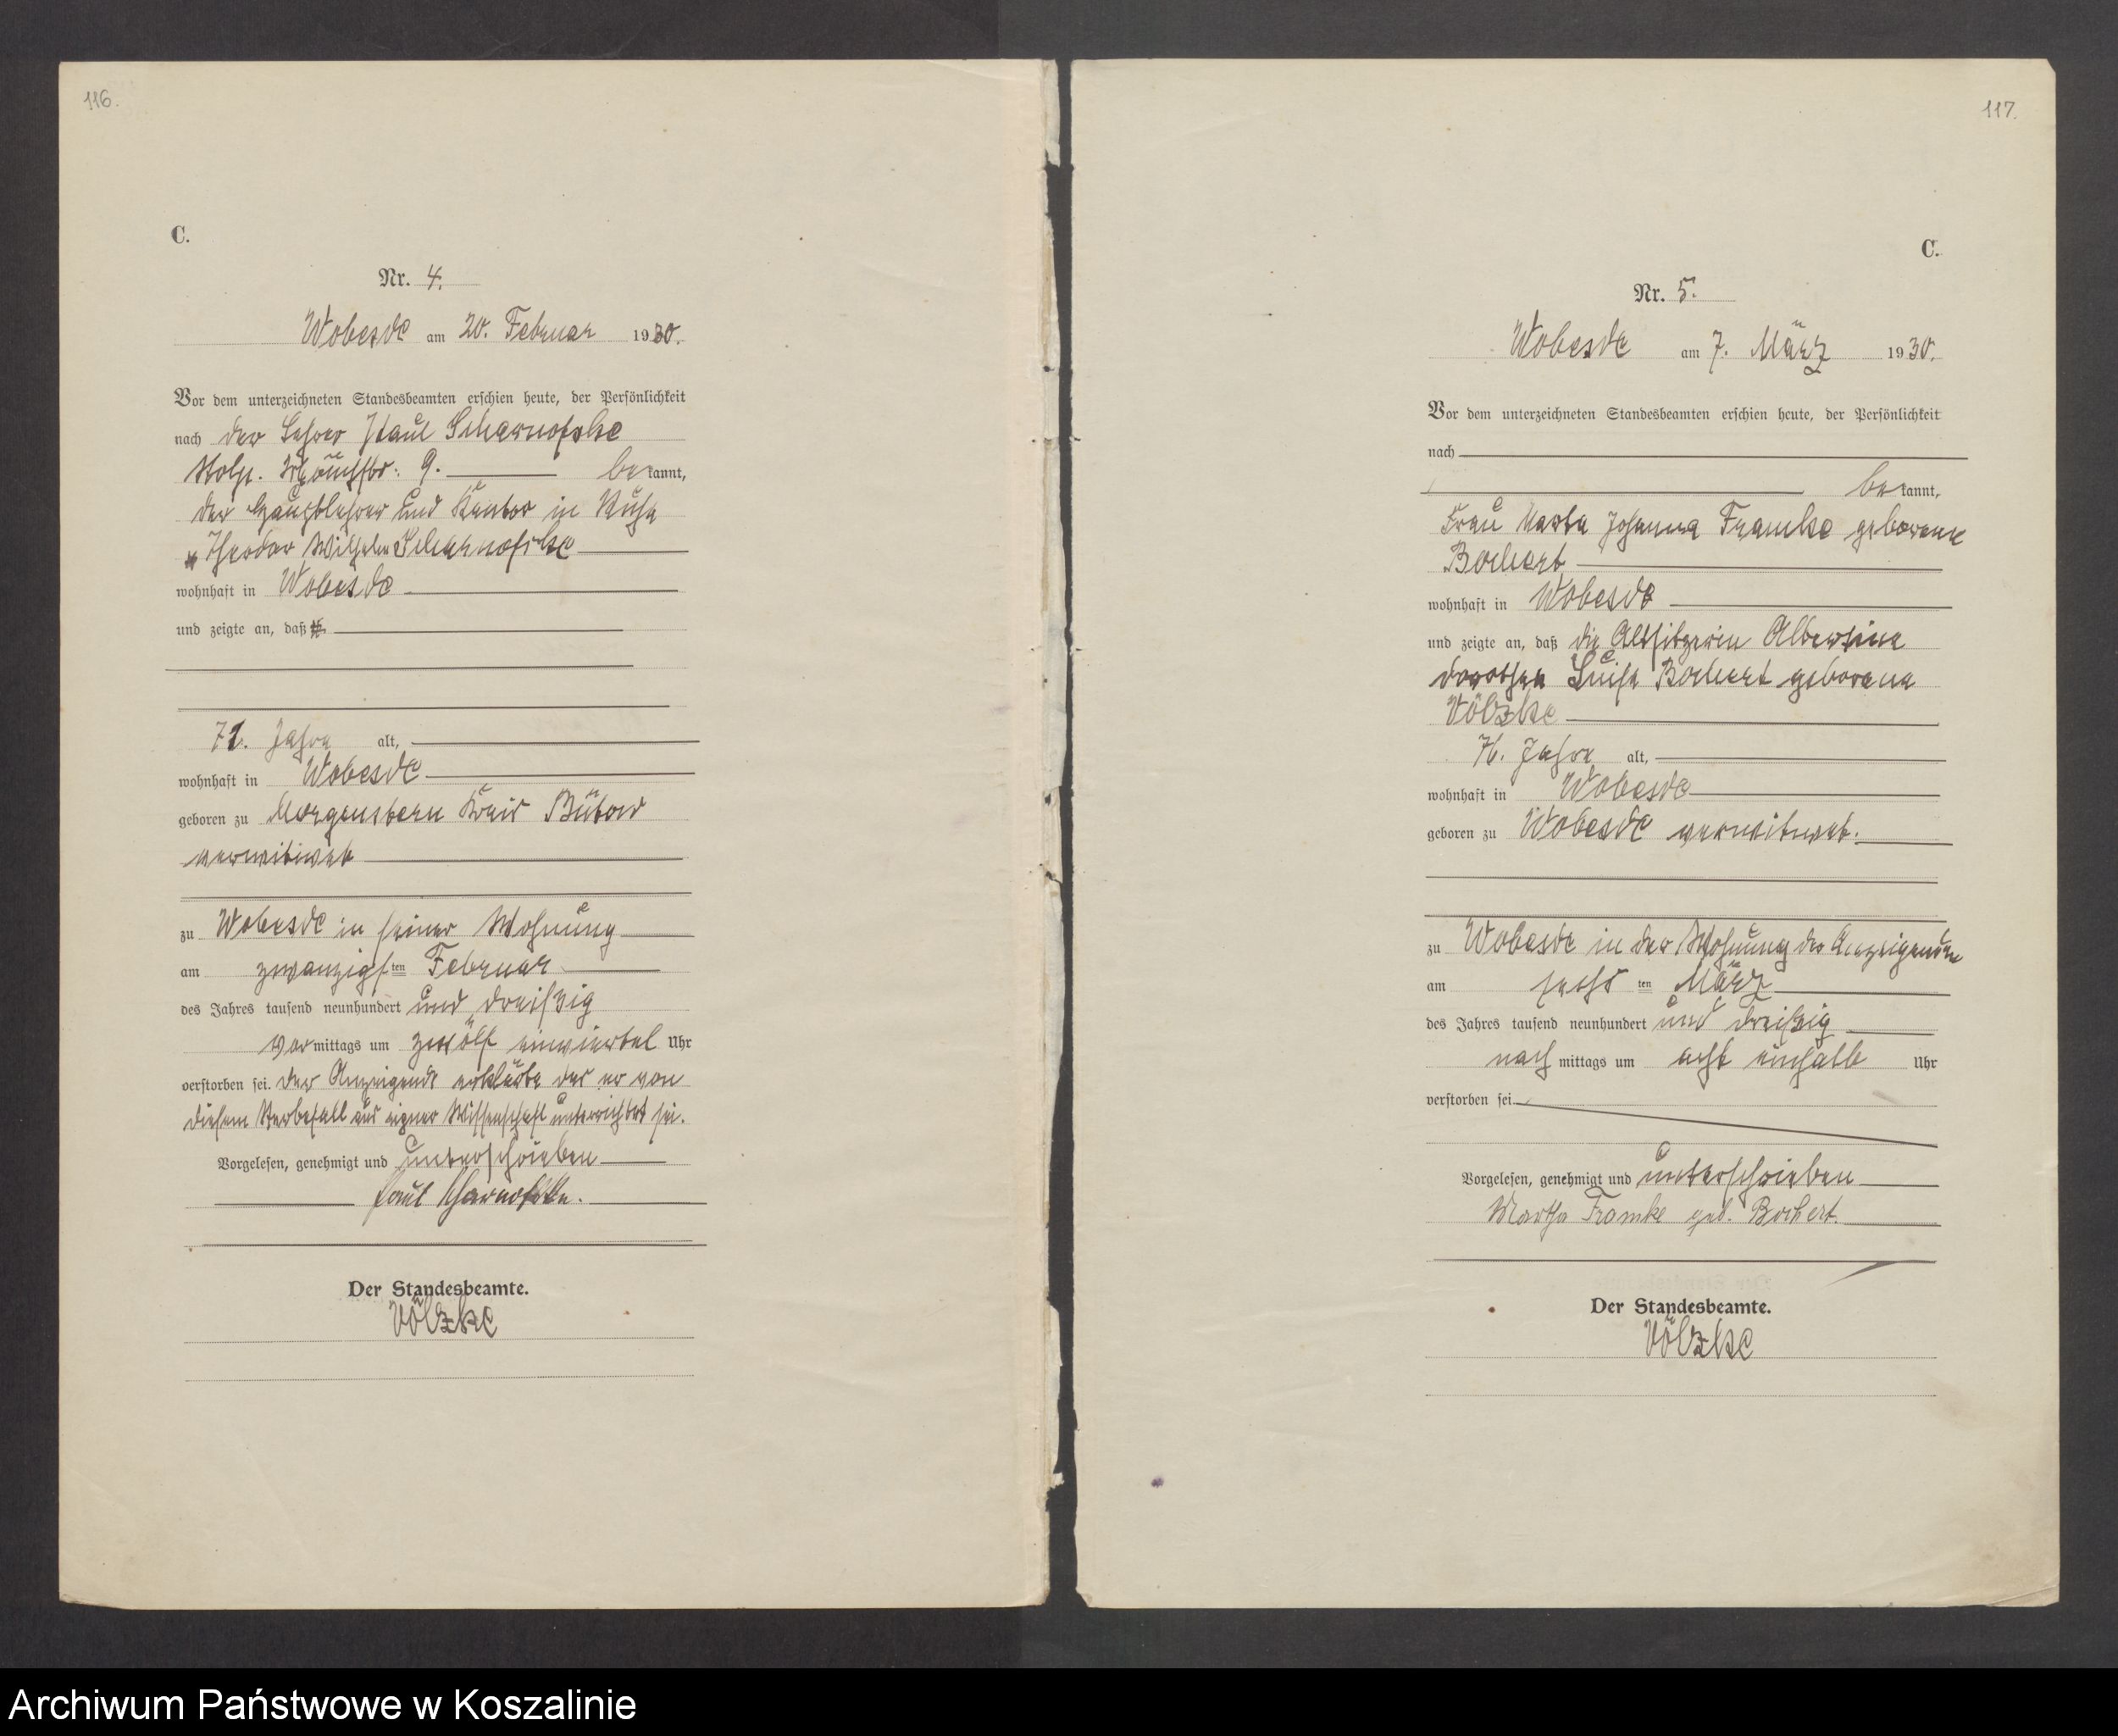 116.
C.
Nr. 4.
Wobesde am 20. Februar 1930.
Vor dem unterzeichneten Standesbeamten erschien heute, der Persönlichkeit
nach der Lehrer Paul Scharnofske
Stolp. 9. be kannt,
der Hauptlehrer und Kantor in Ruhe
Theodor Wilhelm Scharnofske
wohnhaft in Wobesde
und zeigte an, daß
71. Jahre alt,
wohnhaft in Wobesde
geboren zu Morgenstern Kreis Bütow
verwitwet
zu Wobesde in seiner Wohnung
am zwanzigsten Februar
des Jahres tausend neunhundert und dreißig
vor mittags um zwölf einviertel Uhr
verstorben sei. Der Anzeigende erklärte das er von
diesem Sterbefall aus eigner Wissenschaft unterrichtet sei.
Vorgelesen, genehmigt und unterschrieben
Paul Scharnofske.
Der Standesbeamte.
Völzke
117.
C.
Nr. 5.
Wobesde am 7. März 1930.
Vor dem unterzeichneten Standesbeamten erschien heute, der Persönlichkeit
nach
be kannt,
Frau Marta Johanna Framke geborene
Bochert
wohnhaft in Wobesde
und zeigte an, daß die Altsitzerin Albertine
Dorothea Luise Bochert geborene
Völzke
76. Jahre alt,
wohnhaft in Wobesde
geboren zu Wobesde verwitwet.
zu Wobesde in der Wohnung der Anzeigenden
am sechsten März
des Jahres tausend neunhundert und dreißig
nach mittags um acht einhalb Uhr
verstorben sei
Vorgelesen, genehmigt und unterschrieben
Martha Framke geb. Bochert.
Der Standesbeamte.
Völzke
Archiwum Państwowe w Koszalinie